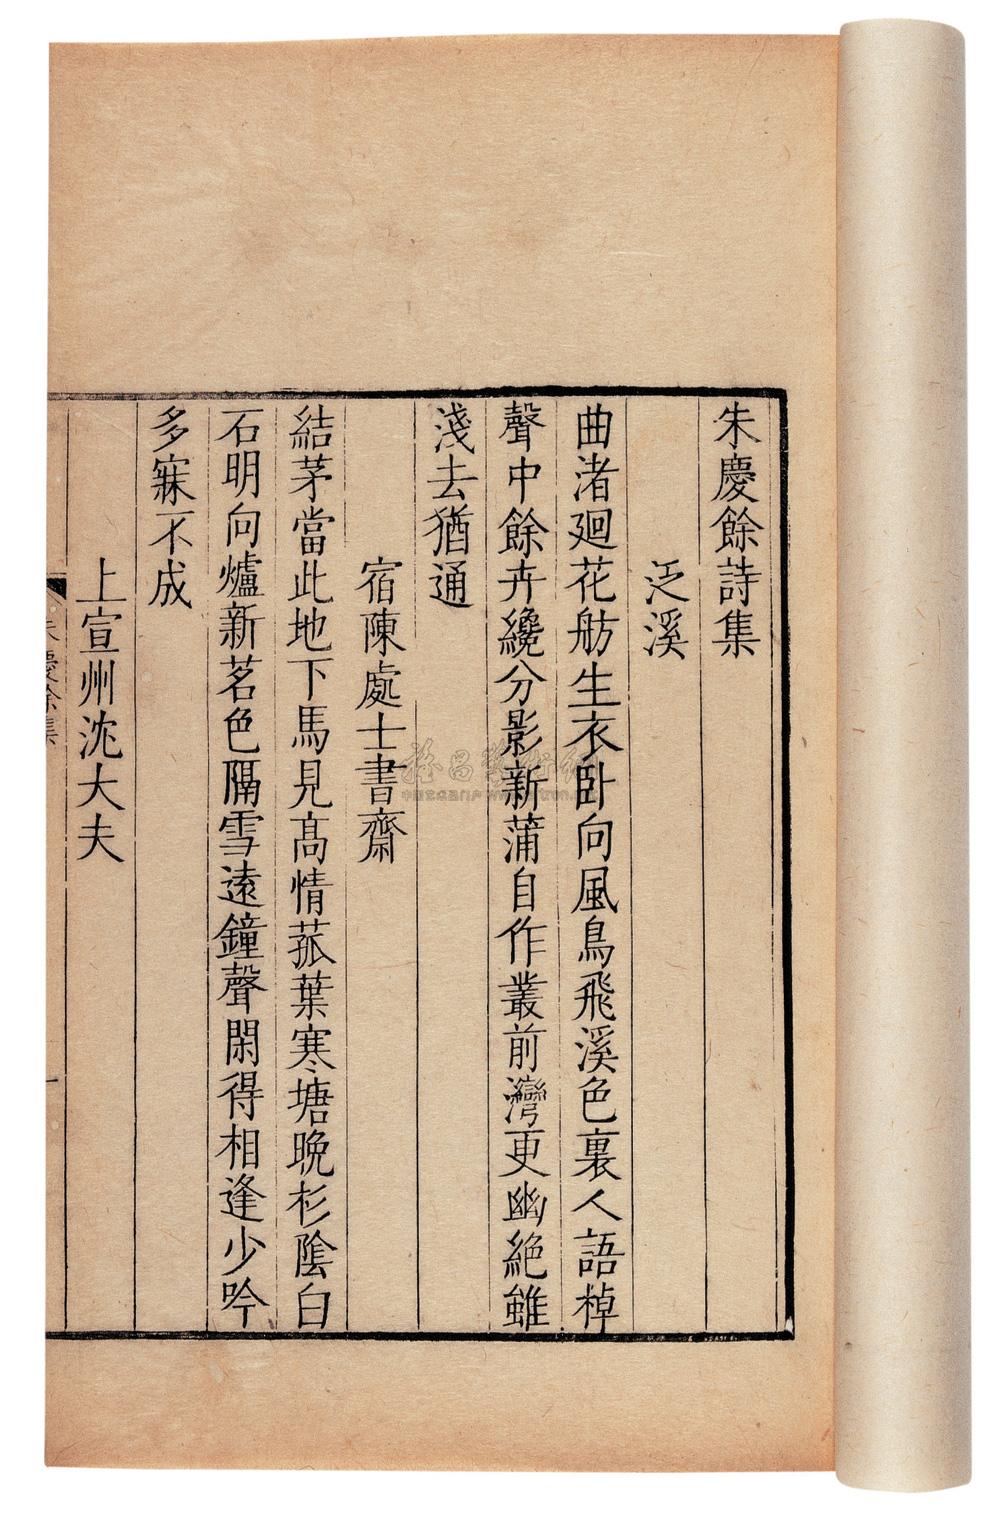 朱慶餘詩集
泛溪
曲渚廻花舫生衣卧向風鳥飛溪色裏人語棹
聲中餘卉纔分影新蒲自作叢前灣更幽絕雖
淺去猶通
宿陳處士書齋
結茅當此地下馬見高情菰葉寒塘晚杉陰白
石明向爐新茗色隔雪遠鐘聲閑得相逢少吟
多寐不成
上宣州沈大夫
朱慶餘集
一